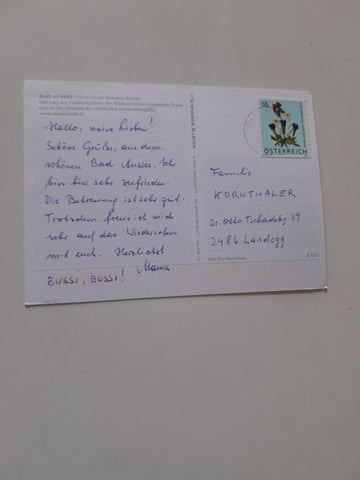 BAD AUSSEE
Hallo, meine Lieben!
Schöne Grüße, aus dem
schönen Bad Aussee. Ich
bin hier sehr zufrieden.
Die Betreuung ist sehr gut.
Trotzdem freue ich mich
sehr auf das Wiedersehen
mit euch. Herzlichst
Mama
BUSSI, BUSSI!
SCHÖNER KARTEN
55
ÖSTERREICH
Familie
KORNTHALER
Dr. Otto Tschadekg. 39
2486 Landegg